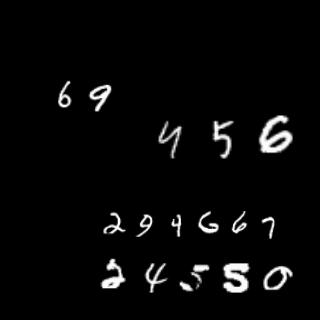 69
456
294667
24550